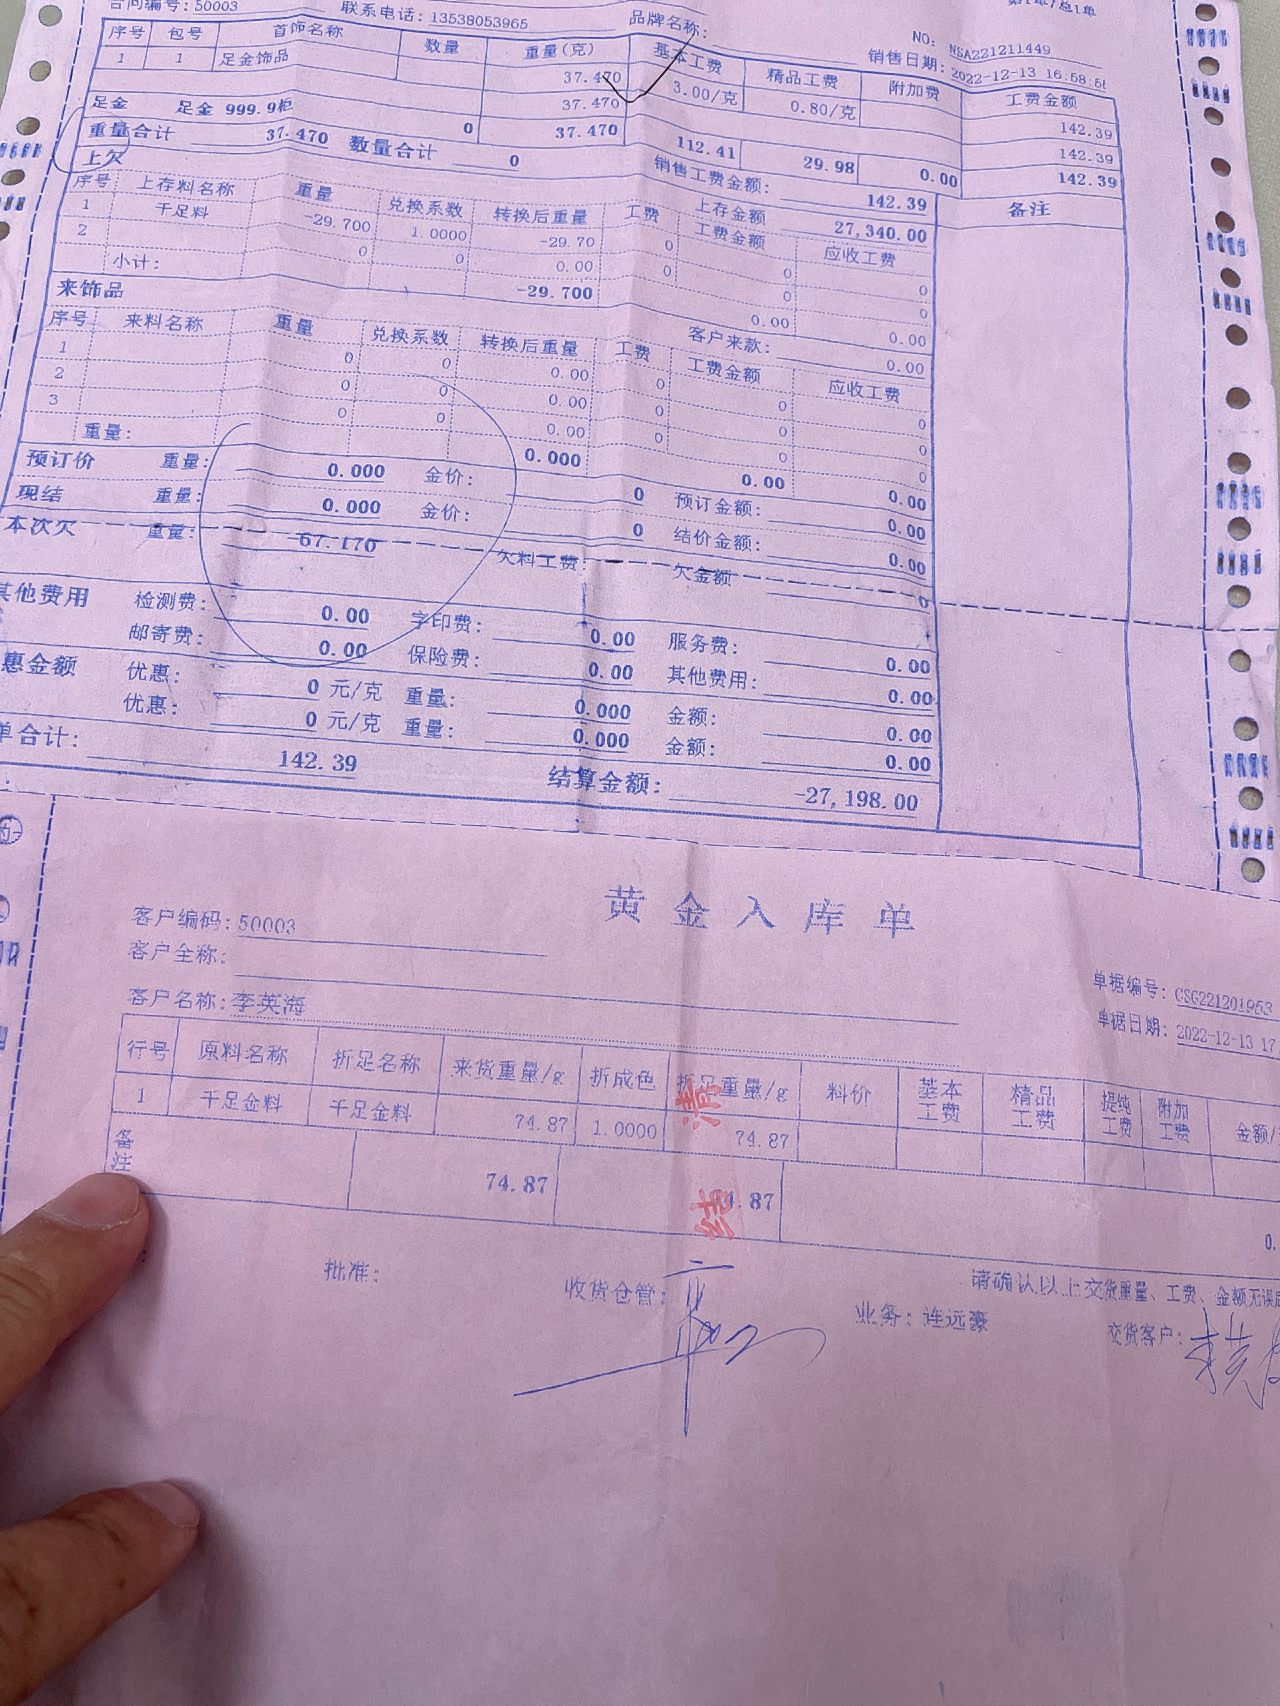 合同编号:50003 联系电话:13538053965 品牌名称: 第1单/总1单
NO: NSA221211449
销售日期:2022-12-13 16:58:5
序号 包号 首饰名称 数量 重量(克) 基本工费 精品工费 附加费 工费金额
1 1 足金饰品 37.470 3.00/克 0.80/克 142.39
足金 足金 999.9柜 37.470 142.39
重量合计 37.470 数量合计 0 0 37.470 112.41 29.98 0.00 142.39
上欠 销售工费金额: 142.39 备注
上存金额 27,340.00
序号 上存料名称 重量 兑换系数 转换后重量 工费 工费金额 应收工费
1 千足料 -29.700 1.0000 -29.70 0 0 0
2 0 0 0.00 0 0 0
小计: -29.700 0.00 0.00
来饰品 客户来款: 0.00
序号 来料名称 重量 兑换系数 转换后重量 工费 工费金额 应收工费
1 0 0 0.00 0 0 0
2 0 0 0.00 0 0 0
3 0 0 0.00 0 0 0
重量: 0.000 0.00 0.00
预订价 重量: 0.000 金价: 0 预订金额: 0.00
现结 重量: 0.000 金价: 0 结价金额: 0.00
本次欠 重量: -67.170 欠料工费: 欠金额 0
其他费用 检测费: 0.00 字印费: 0.00 服务费: 0.00
邮寄费: 0.00 保险费: 0.00 其他费用: 0.00
惠金额 优惠: 0 元/克 重量: 0.000 金额: 0.00
优惠: 0 元/克 重量: 0.000 金额: 0.00
单合计: 142.39 结算金额: -27,198.00
黄金入库单
客户编码:50003
客户全称:
单据编号: CSG221201953
客户名称:李英海
单据日期: 2022-12-13 17
行号 原料名称 折足名称 来货重量/g 折成色 折足重量/g 料价 基本工费 精品工费 提纯工费 附加工费 金额/
1 千足金料 千足金料 74.87 1.0000 74.87
备注 74.87 .87 0.
清
结
批准: 收货仓管: 业务: 连远豪
请确认以上交货重量、工费、金额无误
交货客户: